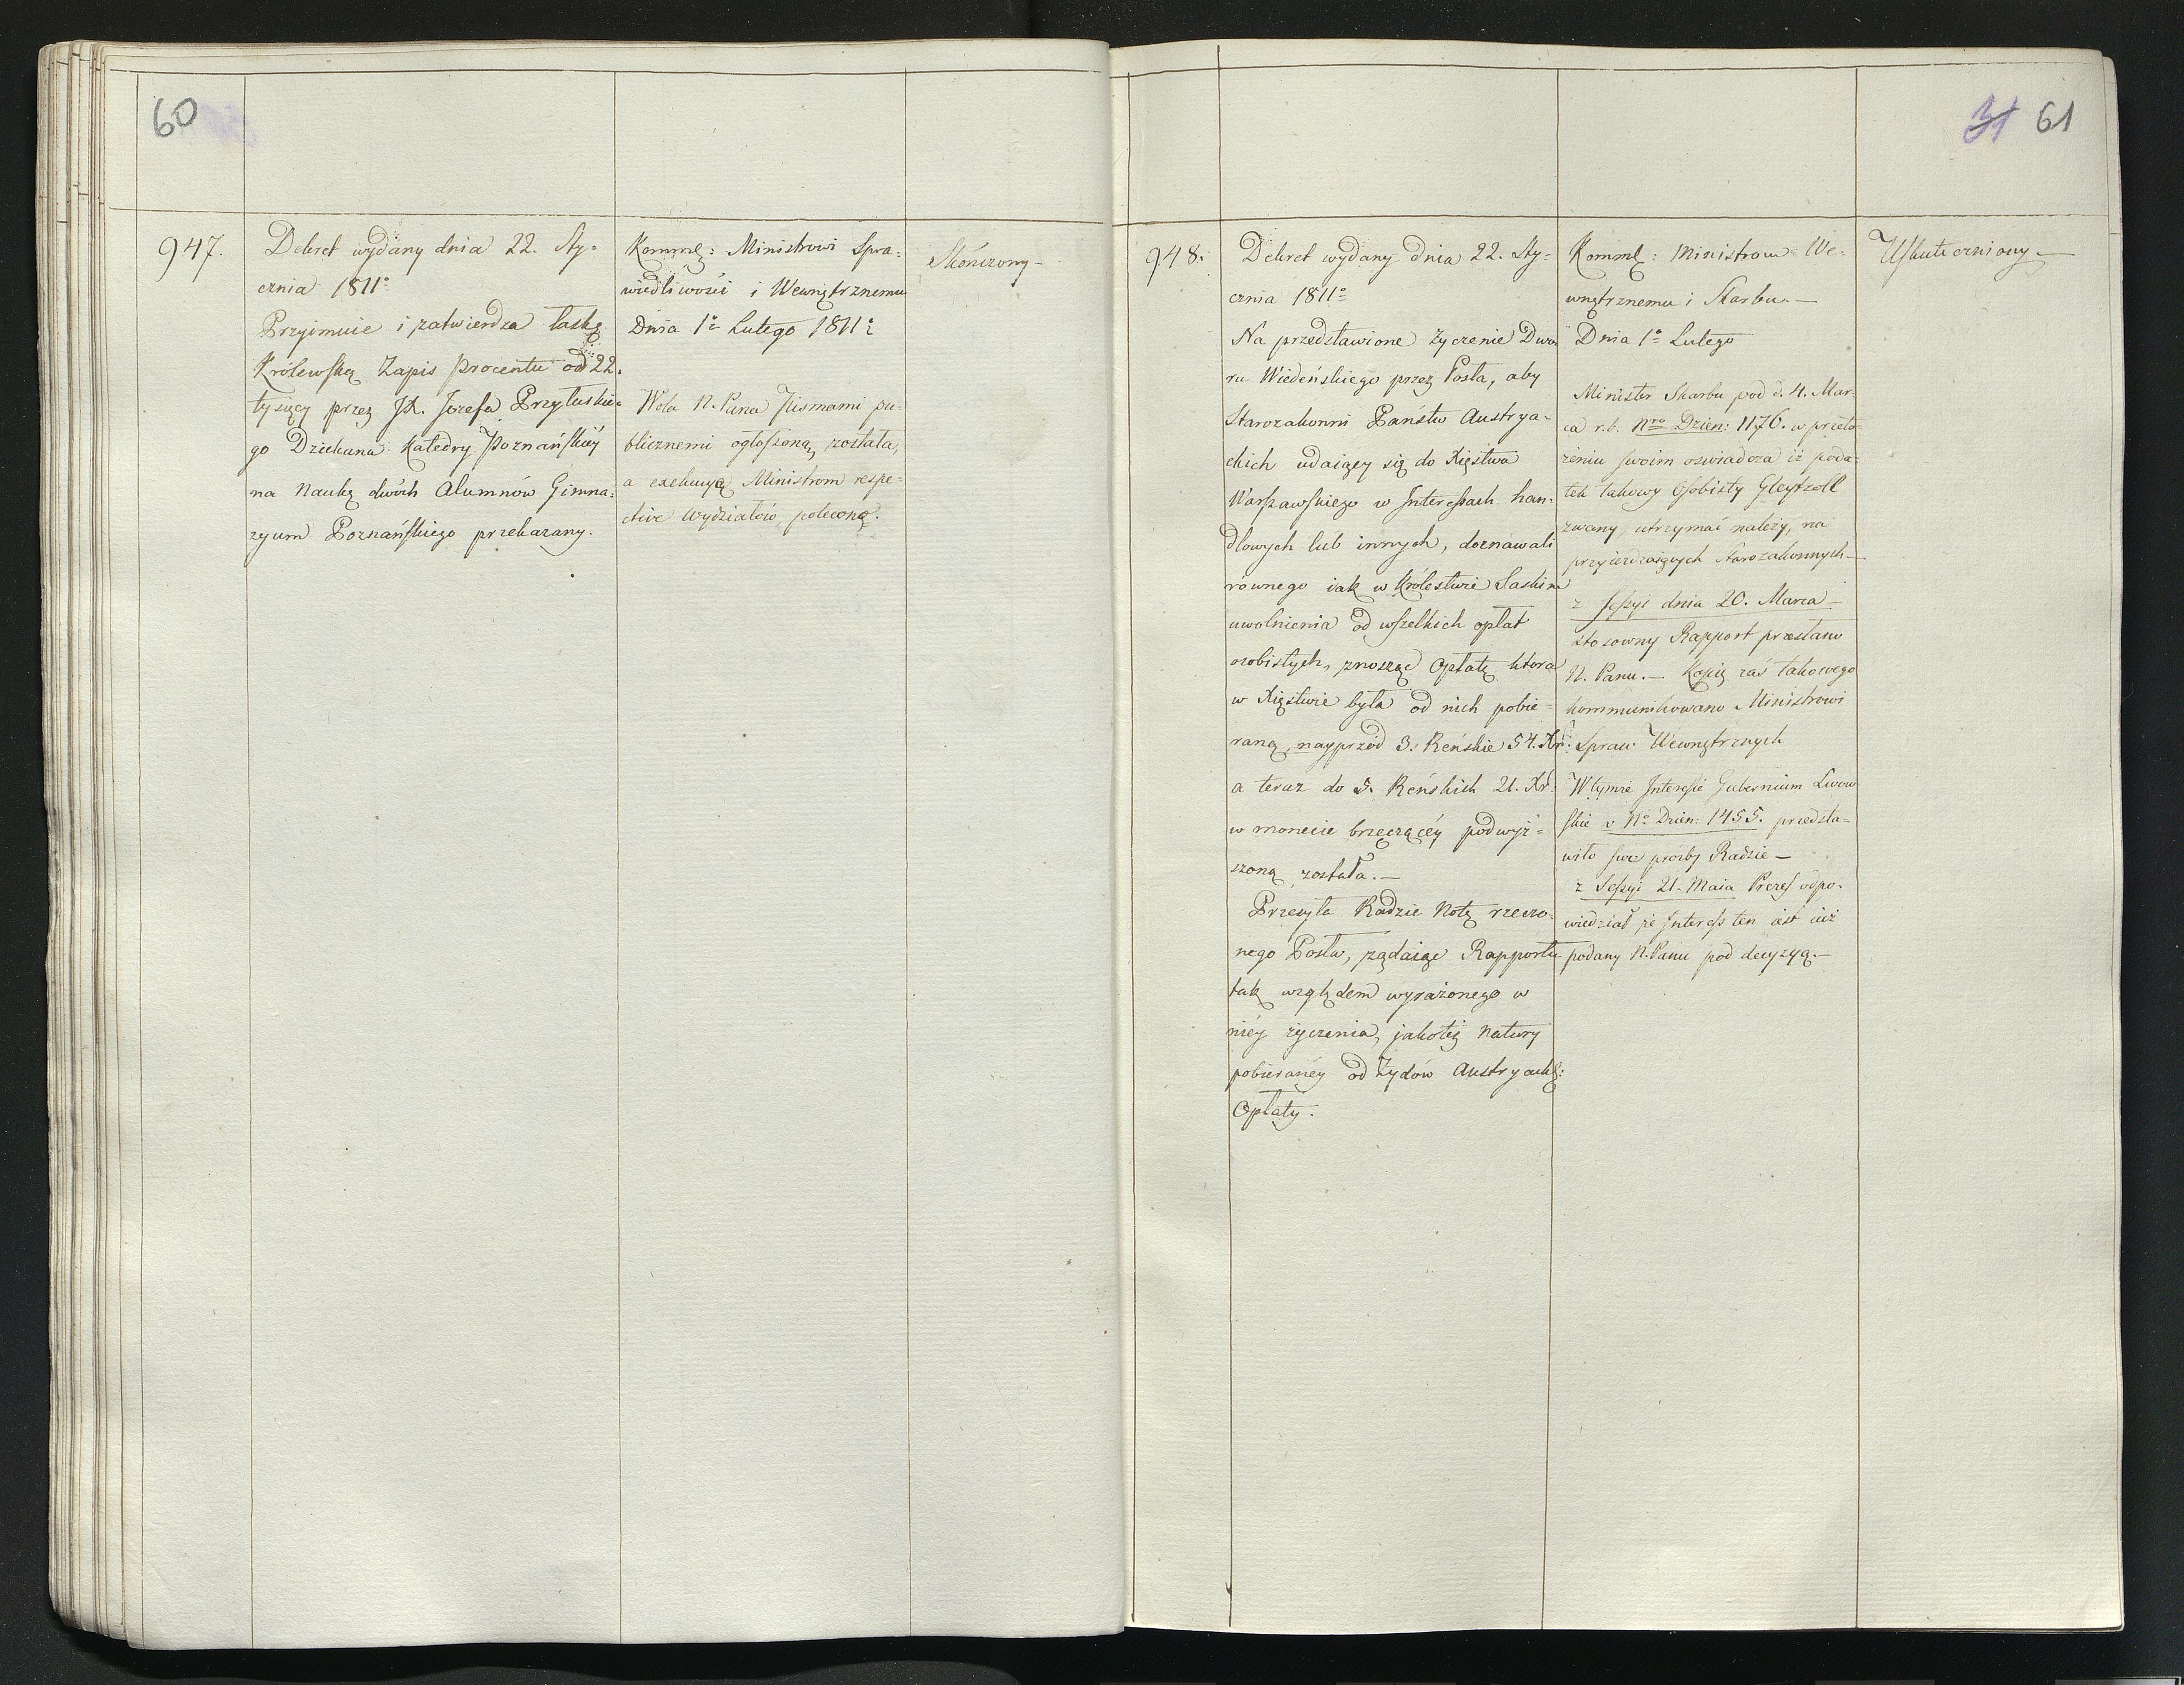 60
947.
Dekret wydany dnia 22. Sty=
cznia 1811o
Przyimuie i zatwierdza łaską
Królewską Zapis Procentu od 22.
tysięcy przez JX. Jozefa Przyłuskie=
go Dziekana Katedry Poznańskiéy
na Naukę dwóch Alumnów Gimna=
zyum Poznańskiego przekazany.
Komm: Ministrowi Spra=
wiedliwości i Wewnętrznemu
Dnia 1o Lutego 1811o
Wola N. Pana Pismami pu=
blicznemi ogłoszoną została,
a exekucyą Ministrom respe=
ctive Wydziałów, poleconą.
Skończony –
31 61
948.
Dekret wydany dnia 22. Sty=
cznia 1811o
Na przedstawione życzenie Dwo=
ru Wiedeńskiego przez Posła, aby
Starozakonni Państw Austrya=
ckich udaiący się do Xięstwa
Warszawskiego w Interessach han=
dlowych lub innych, doznawali
równego iak w Królestwie Saskim
uwolnienia od wszelkich opłat
osobistych, znosząc Opłatę ktora
w Xięstwie była od nich pobie=
raną, nayprzód 3. Reńskie 54. Xr:
a teraz do 5. Reńskich 21. Xr.
w monecie brzęczącéy podwyż=
szoną została. –
Przesyła Radzie Notę rzeczo=
nego Posła, żądaiąc Rapportu
tak względem wyrażonego w
niéy życzenia, jakoteż Natury
pobieranéy od Żydów Austryack:
Opłaty.
Komm: Ministrom We=
wnętrznemu i Skarbu. –
Dnia 1o Lutego
Minister Skarbu pod d. 4. Mar=
ca r.b. Nro Dzien: 1176. w przeło=
żeniu swoim oswiadcza iż poda=
tek takowy Osobisty Gleytzoll
zwany, utrzymać należy, na
przyieżdzaiących Starozakonnych –
z Sessyi dnia 20. Marca –
stosowny Rapport przesłano
N. Panu. – Kopię zaś takowego
kommunikowano Ministrowi
Spraw Wewnętrznych
W tymże Interessie Gubernium Lwow
skie v No Dzien: 1455. przedsta=
wiło swe prośby Radzie –
z Sessyi 21. Maia Prezes odpo=
wiedział że Interess ten iest iuż
podany N. Panu pod decyzyą. –
Uskuteczniony –